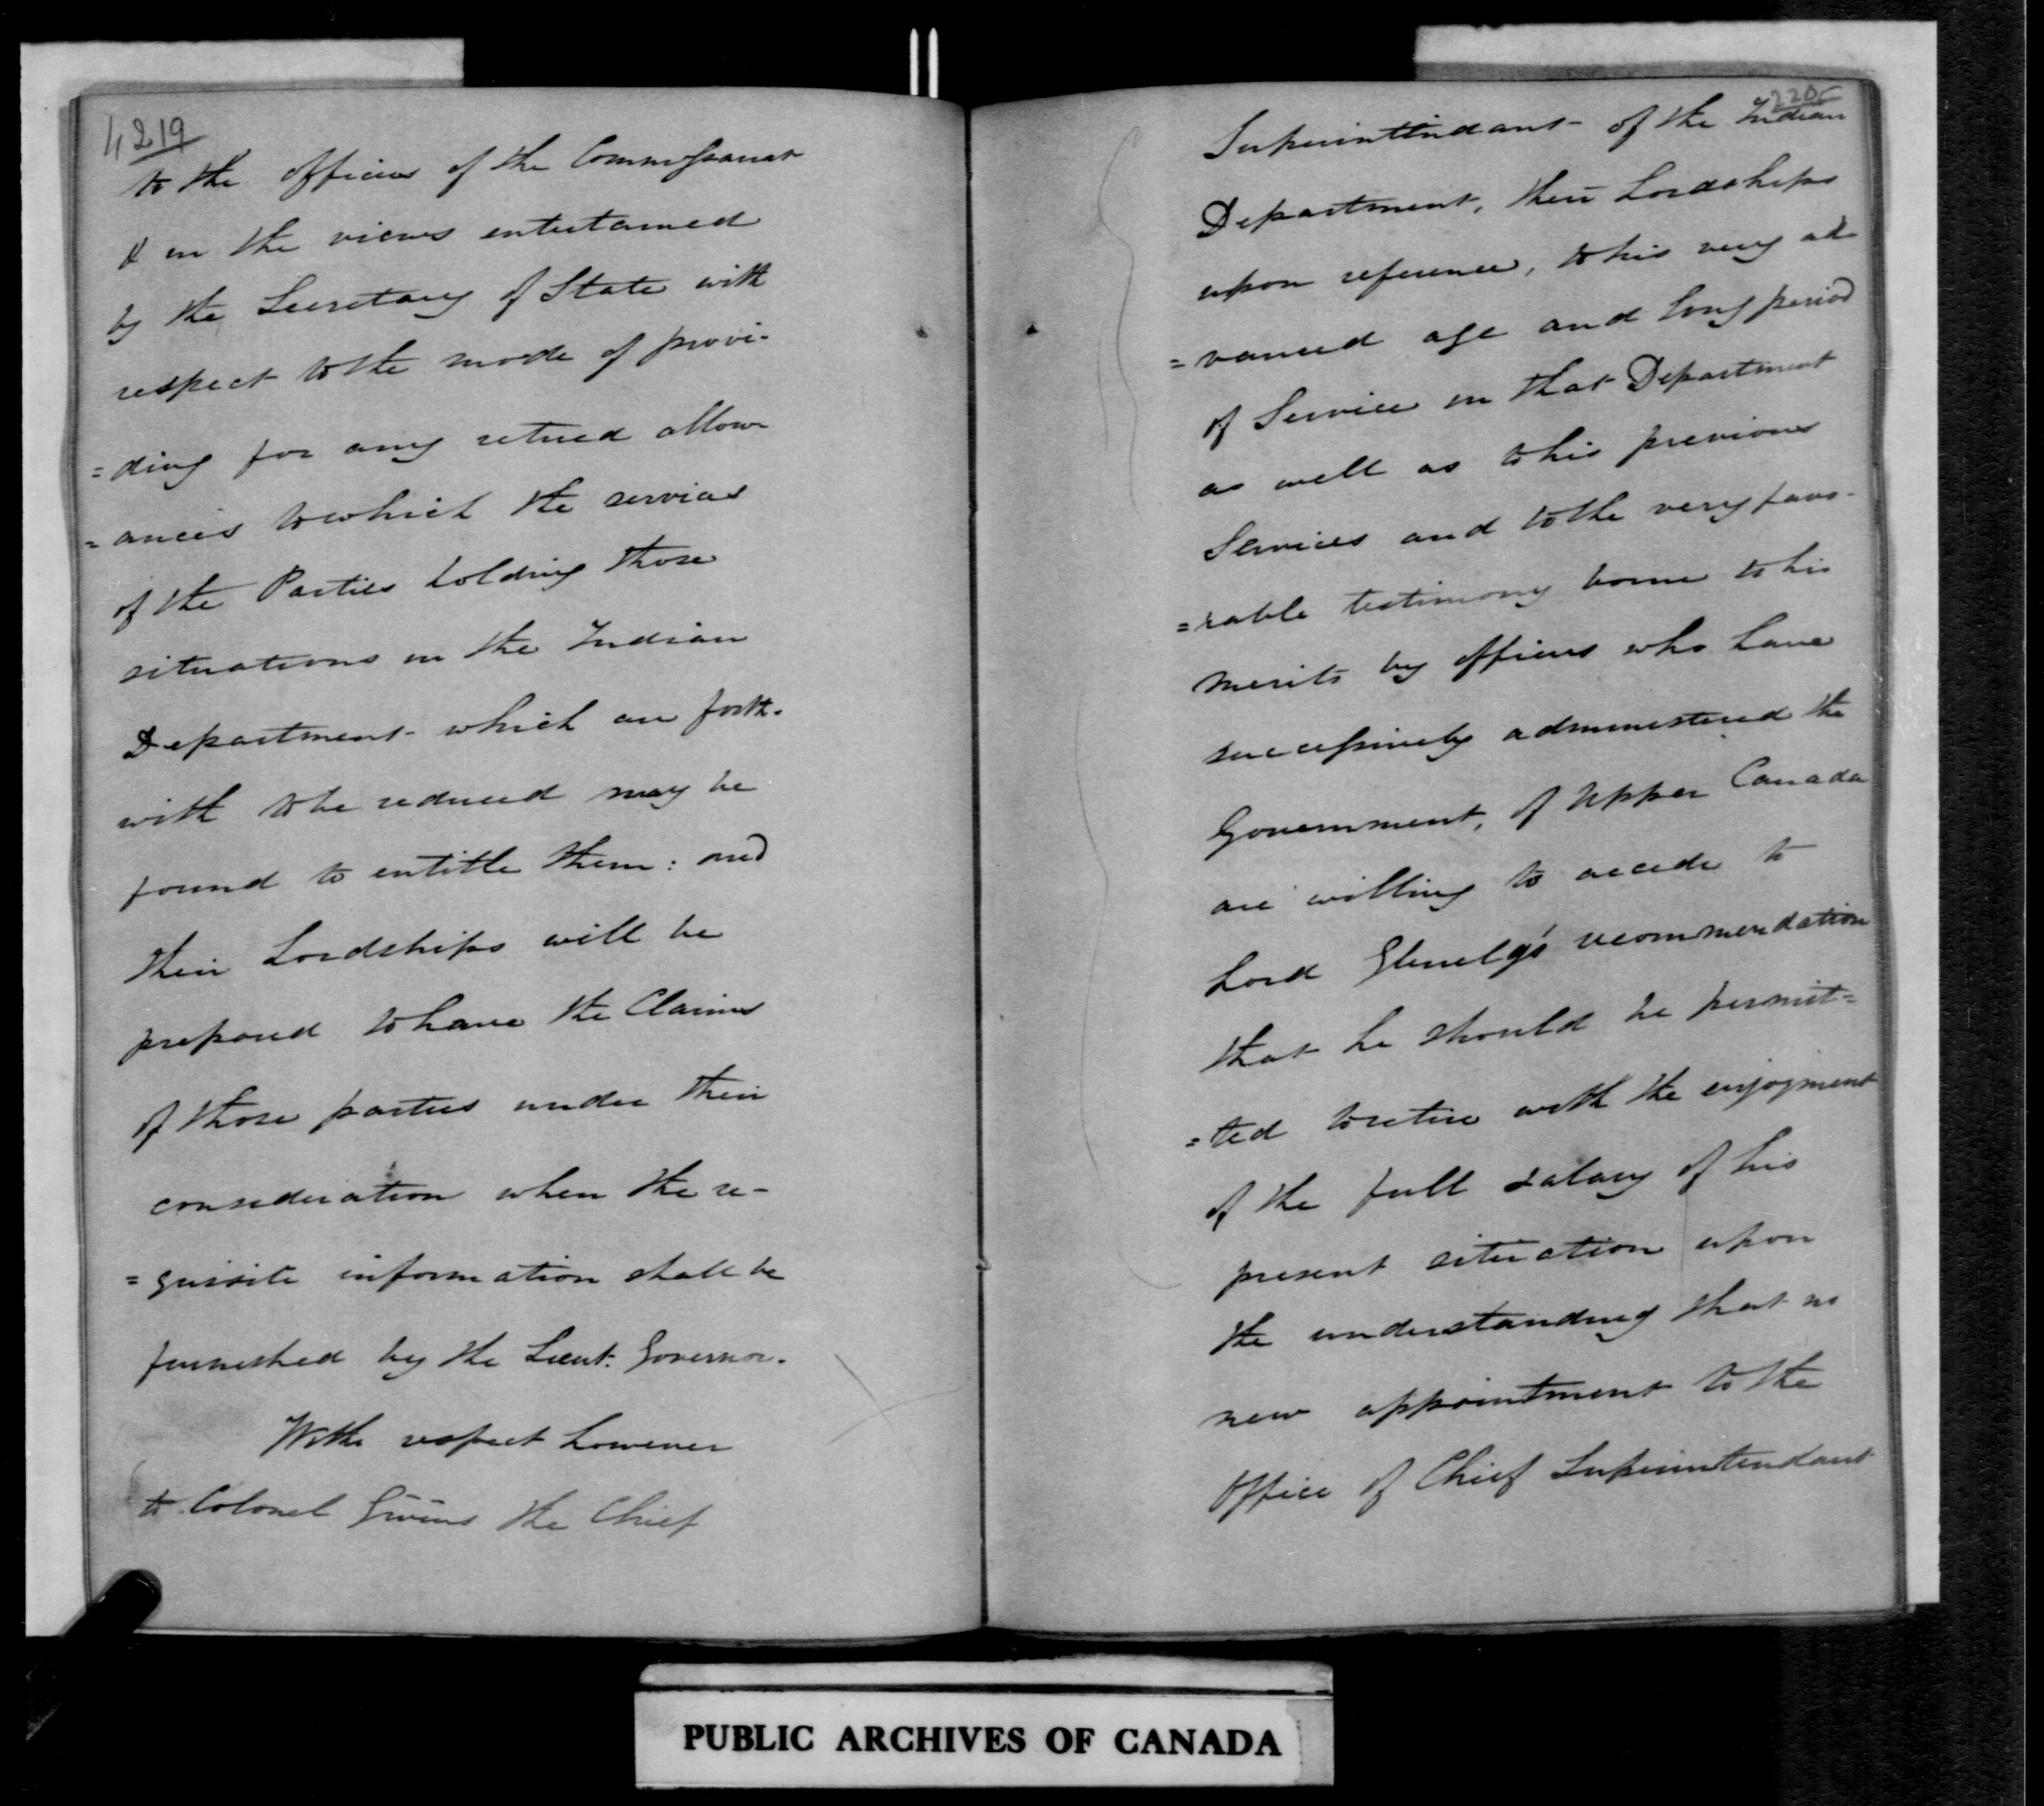 4219
to the officers of the Commissariat
& in the views entertained
by the Secretary of State with
respect to the mode of provi-
=ding for any retired allow
=ances to which the services
of the Parties holding those
situations in the Indian
Department which are forth-
with to be reduced may be
found to entitle them: and
their Lordships will be
prepared to have the Claims
of those parties under their
consideration when the re-
=quisite information shall be
furnished by the Lieut. Governor.
With respect however
to Colonel Givins the Chief
220
Superintendant of the Indian
Department, their Lordships
upon reference, to his very ad
=vanced age and long period
of Service in that Department
as well as to his previous
Services and to the very favo-
=rable testimony borne to his
merits by officers who have
successively administered the
Government, of Upper Canada
are willing to accede to
Lord Glenelg's recommendation
that he should be permit=
=ted to retire with the enjoyment
of the full salary of his
present situation upon
the understanding that no
new appointment to the
Office of Chief Superintendant
PUBLIC ARCHIVES OF CANADA